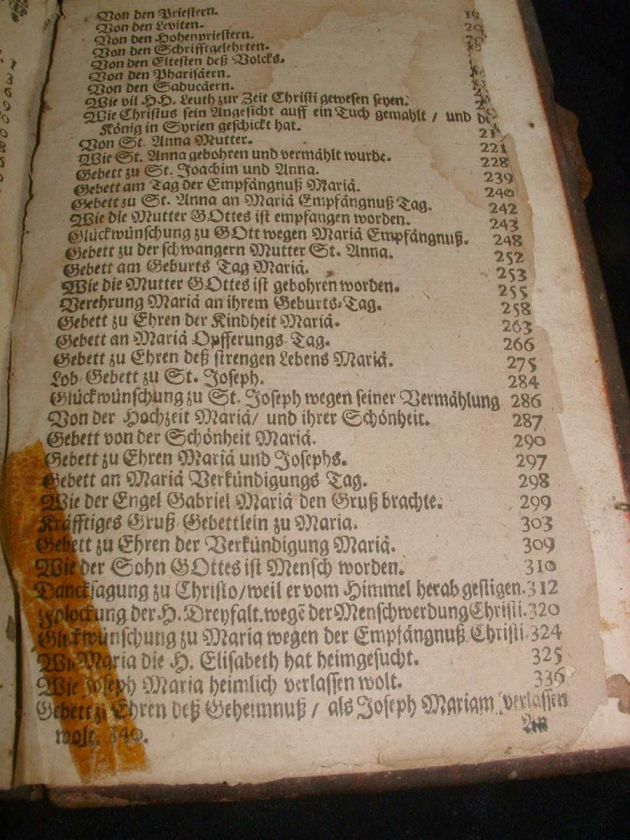 Von den Priestern. 19
Von den Leviten.
Von den Hohenpriestern.
Von den Schrifftgelehrten.
Von den Eltesten deß Volcks.
Von den Pharisäern.
Von den Saducäern.
Wie vil HH. Leuth zur Zeit Christi gewesen seyen.
Wie Christus sein Angesicht auff ein Tuch gemahlt / und
König in Syrien geschickt hat.
Von St. Anna Mutter. 221
Wie St. Anna gebohren und vermählt wurde. 228
Gebett zu St. Joachim und Anna. 239
Gebett am Tag der Empfängnuß Mariä. 240
Gebett zu St. Anna an Mariä Empfängnuß Tag. 242
Wie die Mutter GOttes ist empfangen worden. 243
Glückwünschung zu GOtt wegen Mariä Empfängnuß. 248
Gebett zu der schwangern Mutter St. Anna. 252
Gebett am Geburts Tag Mariä. 253
Wie die Mutter GOttes ist gebohren worden. 255
Verehrung Mariä an ihrem Geburts-Tag. 258
Gebett zu Ehren der Kindheit Mariä. 263
Gebett an Mariä Opfferungs Tag. 266
Gebett zu Ehren deß strengen Lebens Mariä. 275
Lob-Gebett zu St. Joseph. 284
Glückwünschung zu St. Joseph wegen seiner Vermählung 286
Von der Hochzeit Mariä / und ihrer Schönheit. 287
Gebett von der Schönheit Mariä. 290
Gebett zu Ehren Mariä und Josephs. 297
Gebett an Mariä Verkündigungs Tag. 298
Wie der Engel Gabriel Mariä den Gruß brachte. 299
Kräfftiges Gruß-Gebettlein zu Maria. 303
Gebett zu Ehren der Verkündigung Mariä. 309
Wie der Sohn GOttes ist Mensch worden. 310
Dancksagung zu Christo / weil er vom Himmel herab gestigen. 312
Frolockung der H. Dreyfalt. wegē der Menschwerdung Christi. 320
Glückwünschung zu Maria wegen der Empfängnuß Christi. 324
Wie Maria die H. Elisabeth hat heimgesucht. 325
Wie Joseph Maria heimlich verlassen wolt. 336
Gebett zu Ehren deß Geheimnuß / als Joseph Mariam verlassen
wolt. 340.
An